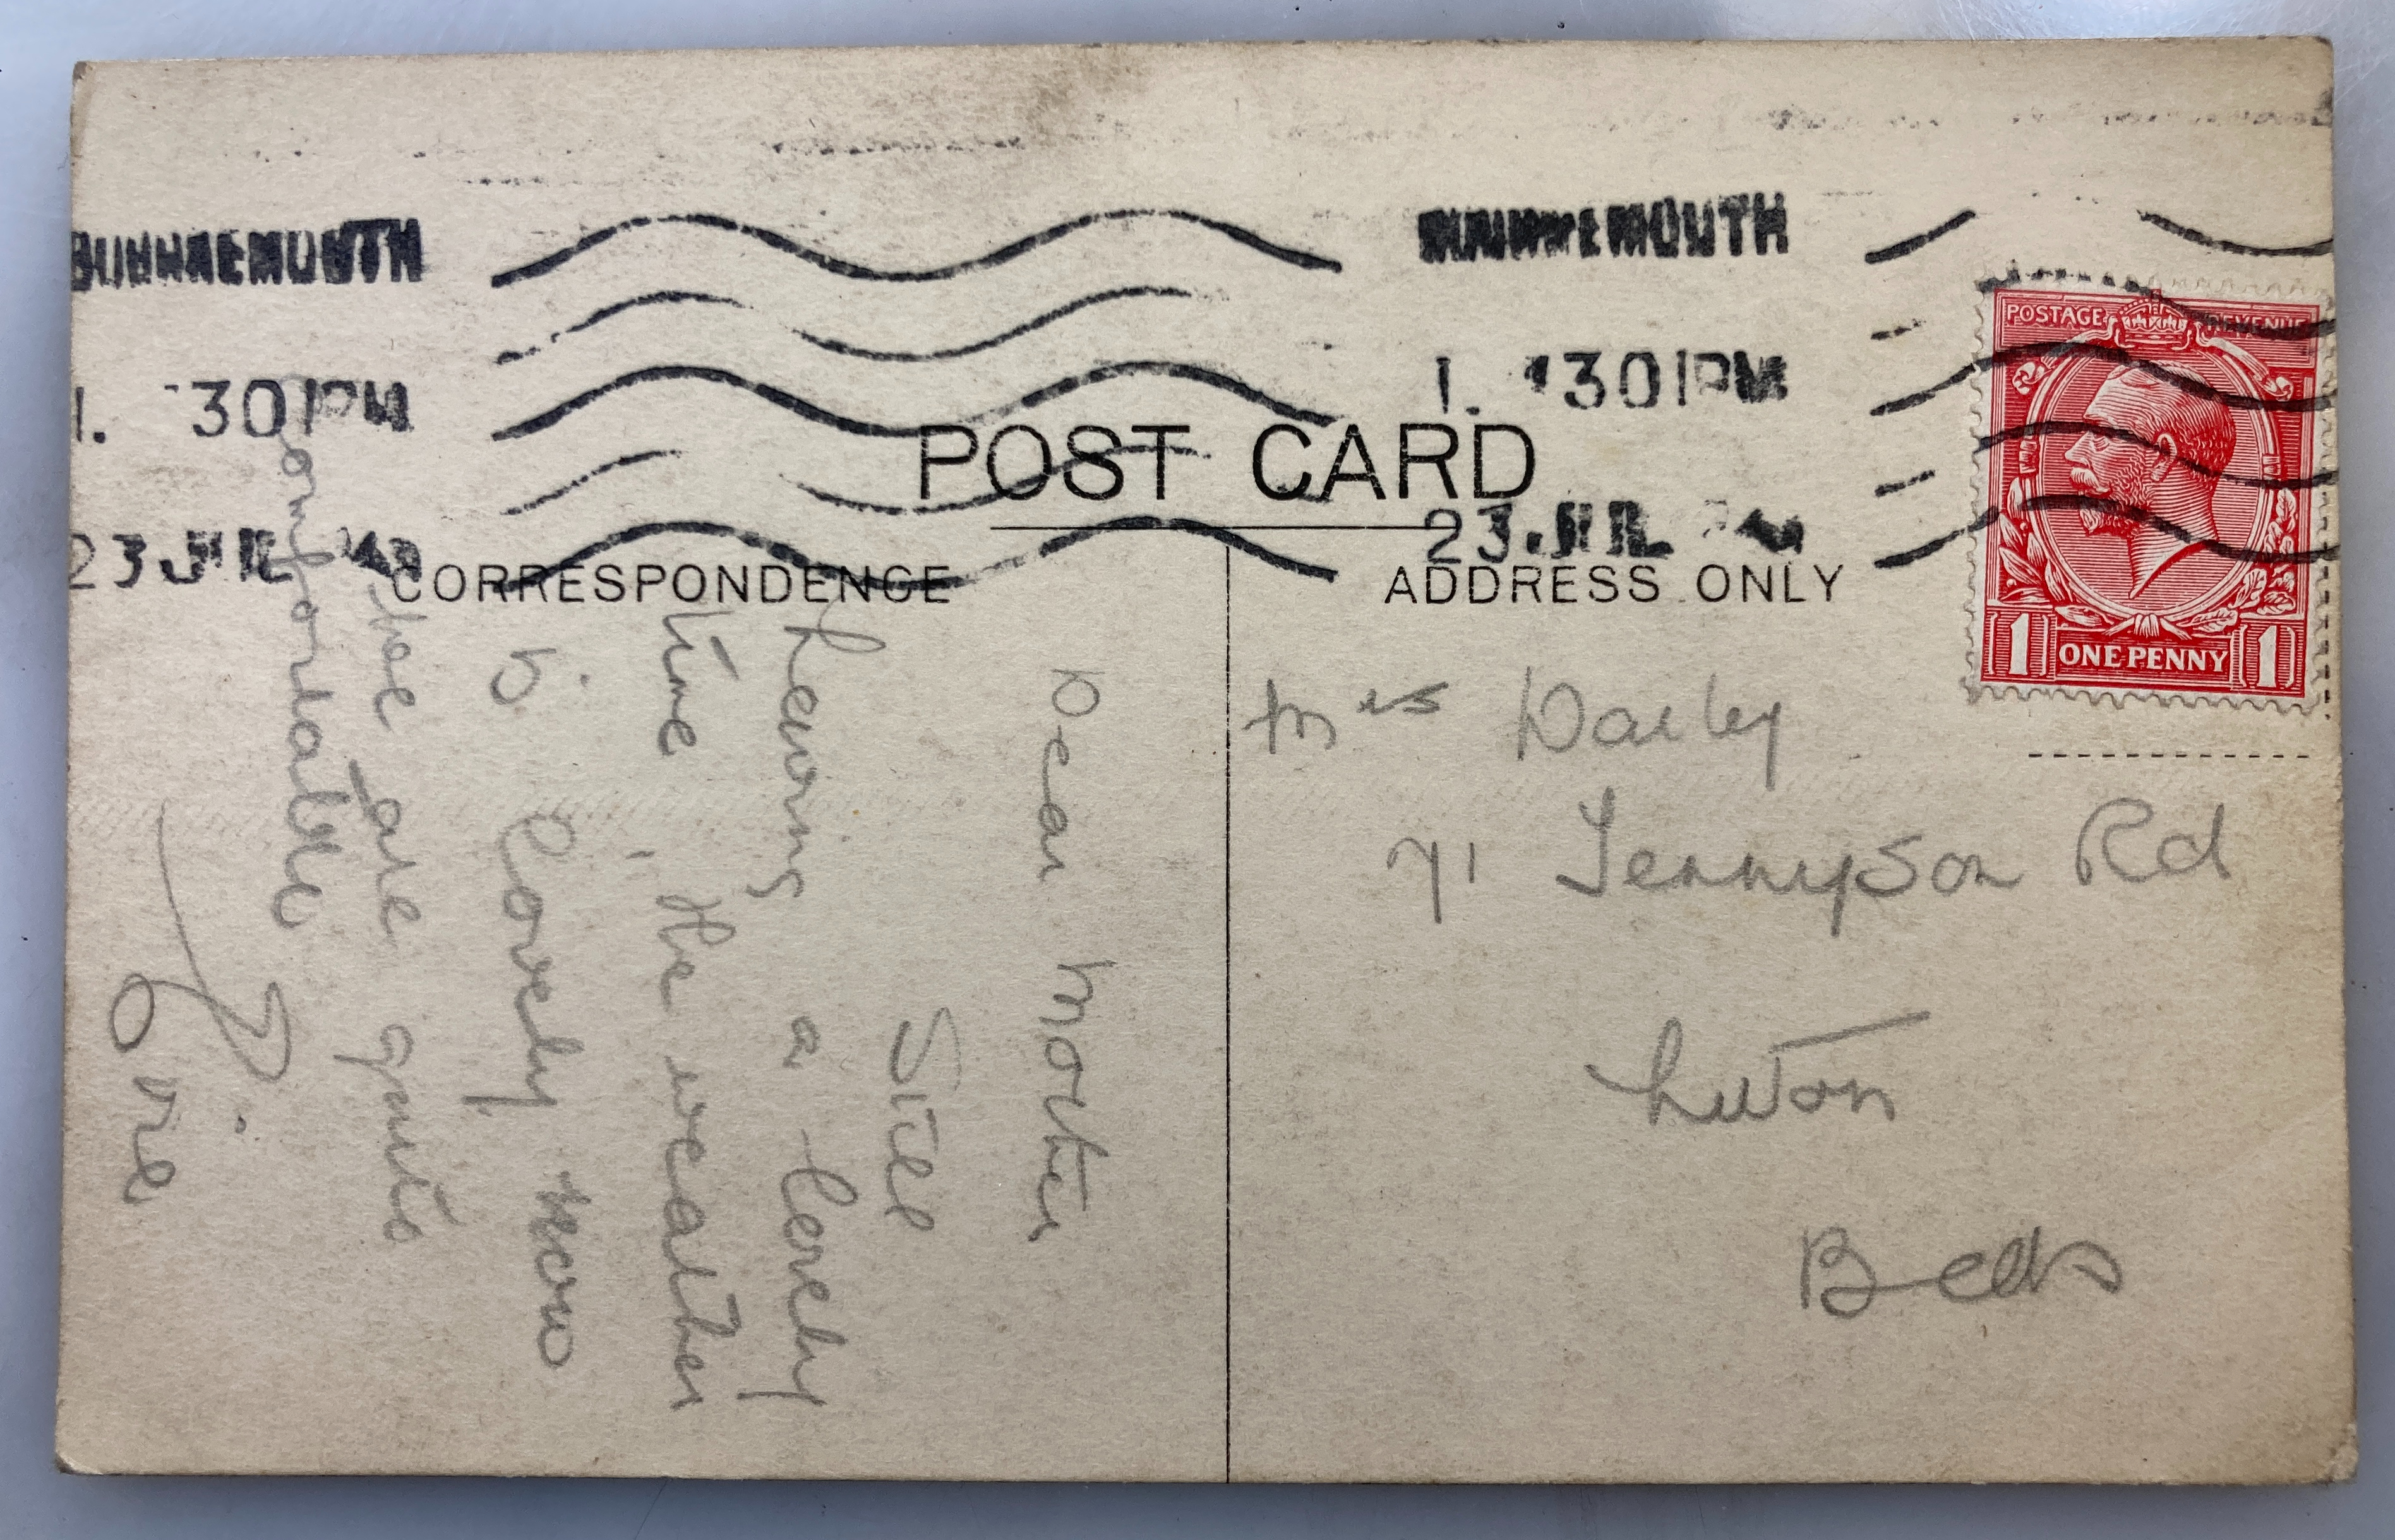 BOURNEMOUTH
1. 30 PM
23 JUL
BOURNEMOUTH
1. 30 PM
23. JUL
POSTAGE REVENUE
1 ONE PENNY 1
POST CARD
CORRESPONDENCE
ADDRESS ONLY
Dear Mother
Still
having a lovely
time, the weather
is lovely now
We are quite
comfortable
Mrs
71 Tennyson Rd
Luton
Beds